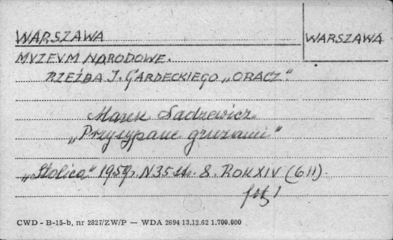 WARSZAWA WARSZAWA
MUZEUM NARODOWE.
RZEŹBA J. GARDECKIEGO „ORACZ"
Marek Sadzewicz
„Przysypane gruzami"
„Stolica" 1959r. N35 str. 8. ROK XIV (611)
fot. 1
CWD - B-15-b, nr 2827/ZW/P — WDA 2694 13.12.62 1.700.000